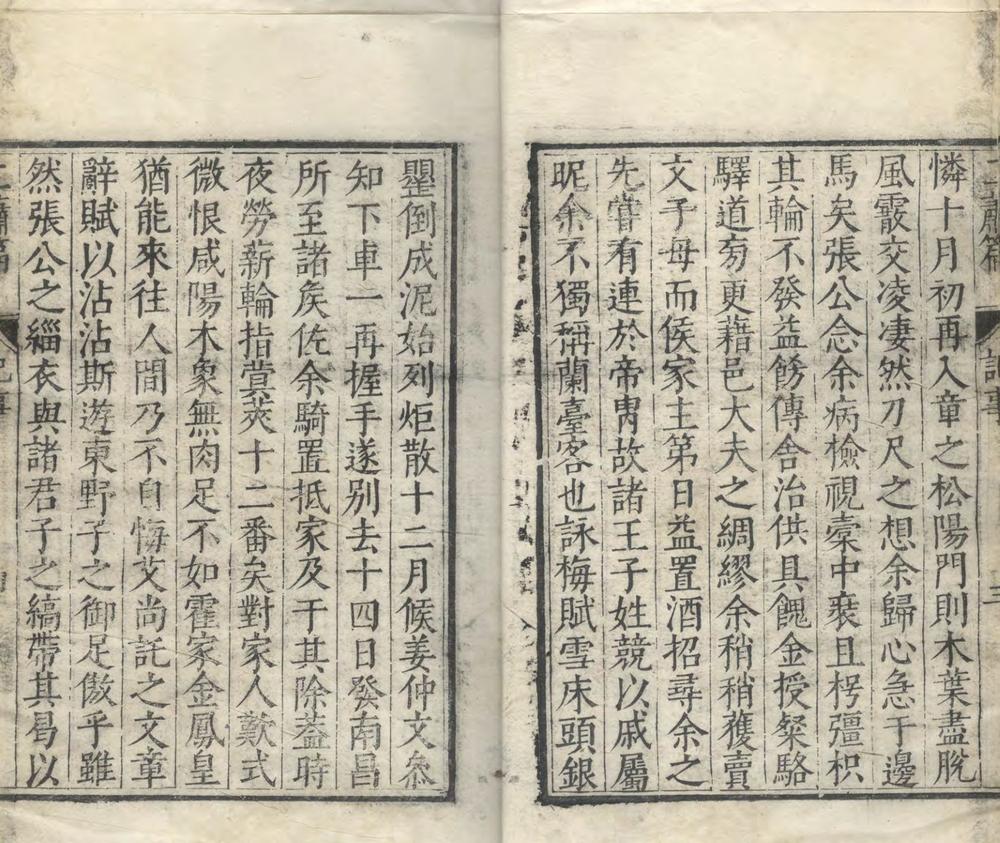 憐十月初再入章之松陽門則木葉盡脫
風霰交凌凄然刀尺之想余歸心急于邊
馬矣張公念余病檢視橐中裘且楞彊枳
其輪不發益餝傳舍治供具餽金授粲駱
驛道旁更藉邑大夫之綢繆余稍稍獲賣
文子母而侯家主第日益置酒招尋余之
先嘗有連於帝胄故諸王子姓競以戚屬
昵余不獨稱蘭臺客也詠梅賦雪床頭銀
罍倒成泥始列炬散十二月候姜仲文叅
知下車一再握手遂别去十四日發南昌
所至諸矦佐余騎置抵家及于其除蓋時
夜勞薪輪指蓂莢十二番矣對家人歎式
微恨咸陽木象無肉足不如霍家金鳳皇
猶能來往人間乃不自悔艾尚託之文章
辭賦以沾沾斯遊東野子之御足傲乎雖
然張公之緇衣與諸君子之縞帶其曷以